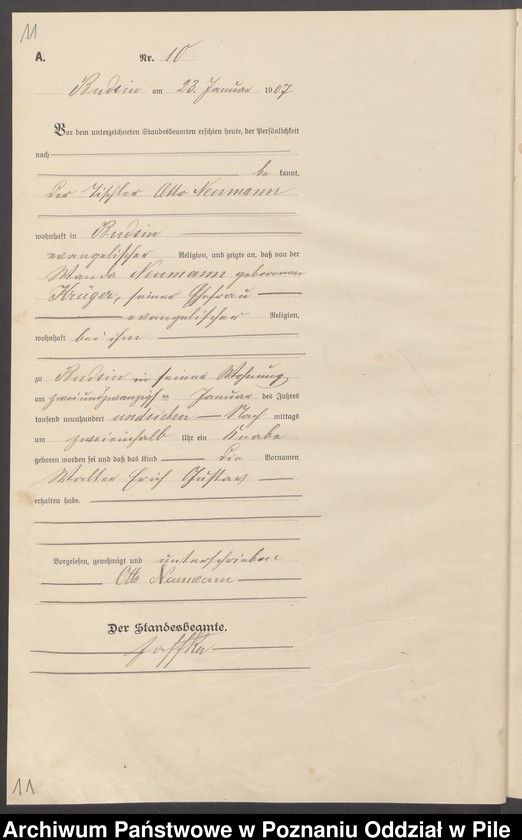 11
A. Nr. 10
Budsin am 23. Januar 1907
Vor dem unterzeichneten Standesbeamten erschien heute, der Persönlichkeit
nach
be kannt,
der Tischler Otto Neumann
wohnhaft in Budsin
evangelischer Religion, und zeigte an, daß von der
Wanda Neumann geborenen
Krüger, seiner Ehefrau
evangelischer Religion,
wohnhaft bei ihm
zu Budsin in seiner Wohnung
am zweiundzwanzigsten Januar des Jahres
tausend neunhundert undsieben Nach mittags
um zweieinhalb Uhr ein Knabe
geboren worden sei und daß das Kind die Vornamen
Walter Erich Gustav
erhalten habe.
Vorgelesen, genehmigt und unterschrieben
Otto Neumann
Der Standesbeamte.
11
Archiwum Państwowe w Poznaniu Oddział w Pile